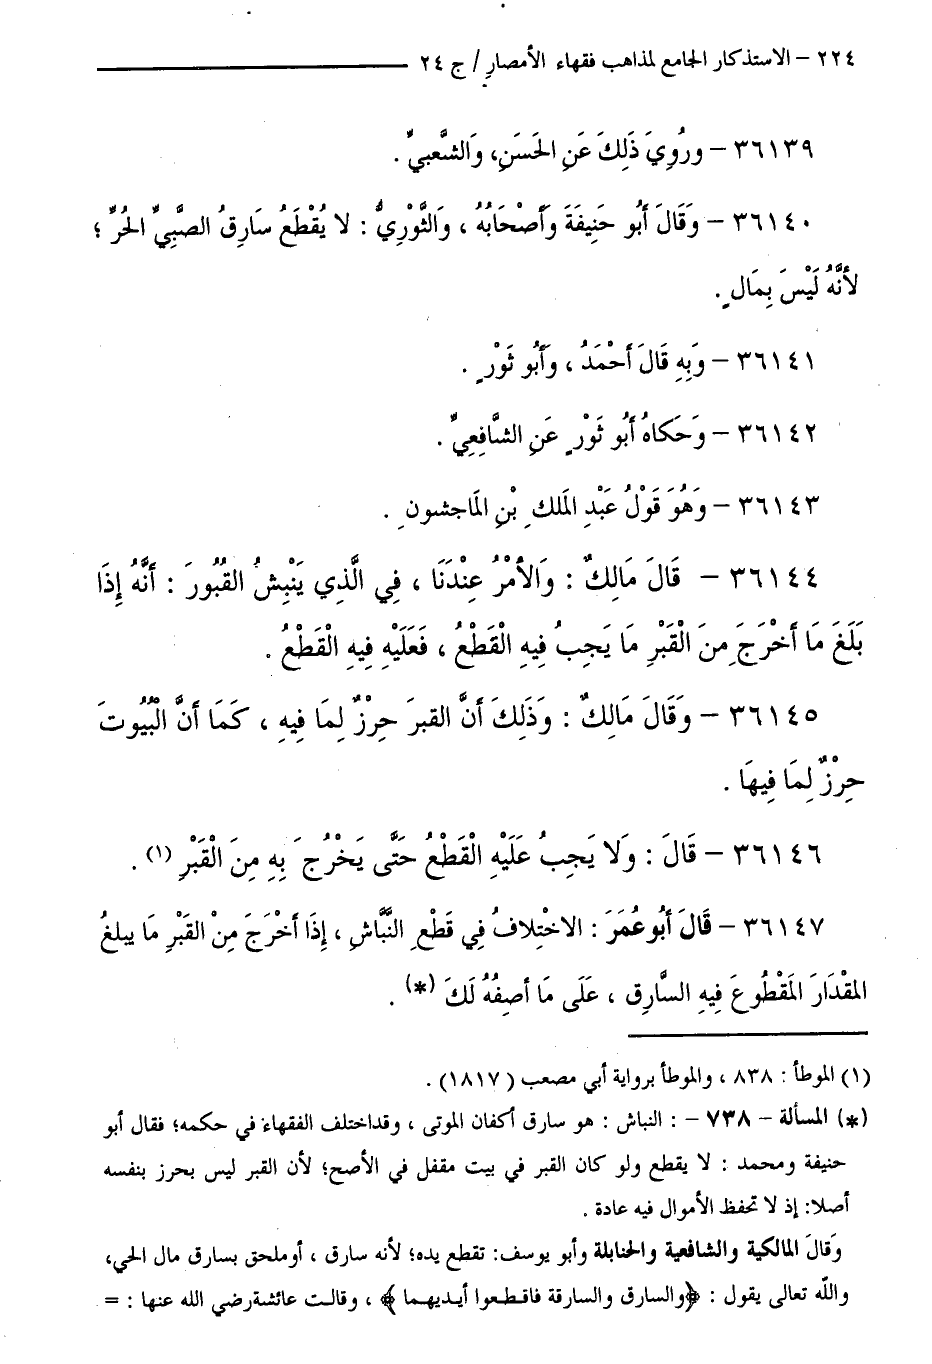 ٢٢٤ – الاستذكار الجامع لمذاهب فقهاء الأمصار / ج ٢٤
٣٦١٣٩ – ورُوِيَ ذَلِكَ عَنِ الحَسَنِ، وَالشَّعبيِّ .
٣٦١٤٠ – وَقَالَ أَبُو حَنِيفَةَ وَأَصْحَابُهُ ، وَالثَّوْرِيُّ : لا يُقْطَعُ سَارِقُ الصَّبِيِّ الحُرِّ ؛
لأنَّهُ لَيْسَ بِمَالٍ .
٣٦١٤١ – وَبِهِ قَالَ أَحْمَدُ ، وَأَبُو ثَوْرٍ .
٣٦١٤٢ – وَحَكاهُ أَبُو ثَوْرٍ عَنِ الشَّافِعِيِّ .
٣٦١٤٣ – وَهُوَ قَوْلُ عَبْدِ المَلكِ بْنِ المَاجشونِ .
٣٦١٤٤ – قَالَ مَالِكٌ : وَالأمْرُ عِنْدَنَا ، فِي الَّذِي يَنْبِشُ القُبُورَ : أَنَّهُ إِذَا
بَلَغَ مَا أَخْرَجَ مِنَ الْقَبْرِ مَا يَجِبُ فِيهِ الْقَطْعُ ، فَعَلَيْهِ فِيهِ الْقَطْعُ .
٣٦١٤٥ – وَقَالَ مَالِكٌ : وَذَلِكَ أَنَّ القبرَ حِرْزٌ لِمَا فِيهِ ، كَمَا أَنَّ الْبُيُوتَ
حِرْزٌ لِمَا فِيهَا .
٣٦١٤٦ – قَالَ : وَلا يَجِبُ عَلَيْهِ الْقَطْعُ حَتَّى يَخْرُجَ بِهِ مِنَ الْقَبْرِ (١) .
٣٦١٤٧ – قَالَ أَبُو عُمَرَ : الاخْتِلافُ فِي قَطْعِ النَّبَّاشِ ، إِذَا أَخْرَجَ مِنْ القَبْرِ مَا يبلغُ
المقْدَارَ المَقْطُوعَ فِيهِ السَّارِق ، عَلَى مَا أصِفُهُ لَكَ (*) .
(١) الموطأ : ٨٣٨ ، والموطأ برواية أبي مصعب ( ١٨١٧) .
(*) المسألة – ٧٣٨ – : النباش : هو سارق أكفان الموتى ، وقد اختلف الفقهاء في حكمه؛ فقال أبو
حنيفة ومحمد : لا يقطع ولو كان القبر في بيت مقفل في الأصح؛ لأن القبر ليس بحرز بنفسه
أصلا: إذ لا تحفظ الأموال فيه عادة .
وَقالَ المالكية والشافعية والحنابلة وأبو يوسف: تقطع يده؛ لأنه سارق ، أو ملحق بسارق مال الحي،
والله تعالى يقول : ﴿والسارق والسارقة فاقـطعوا أيـديهـما ﴾ ، وقالت عائشة رضي الله عنها : =